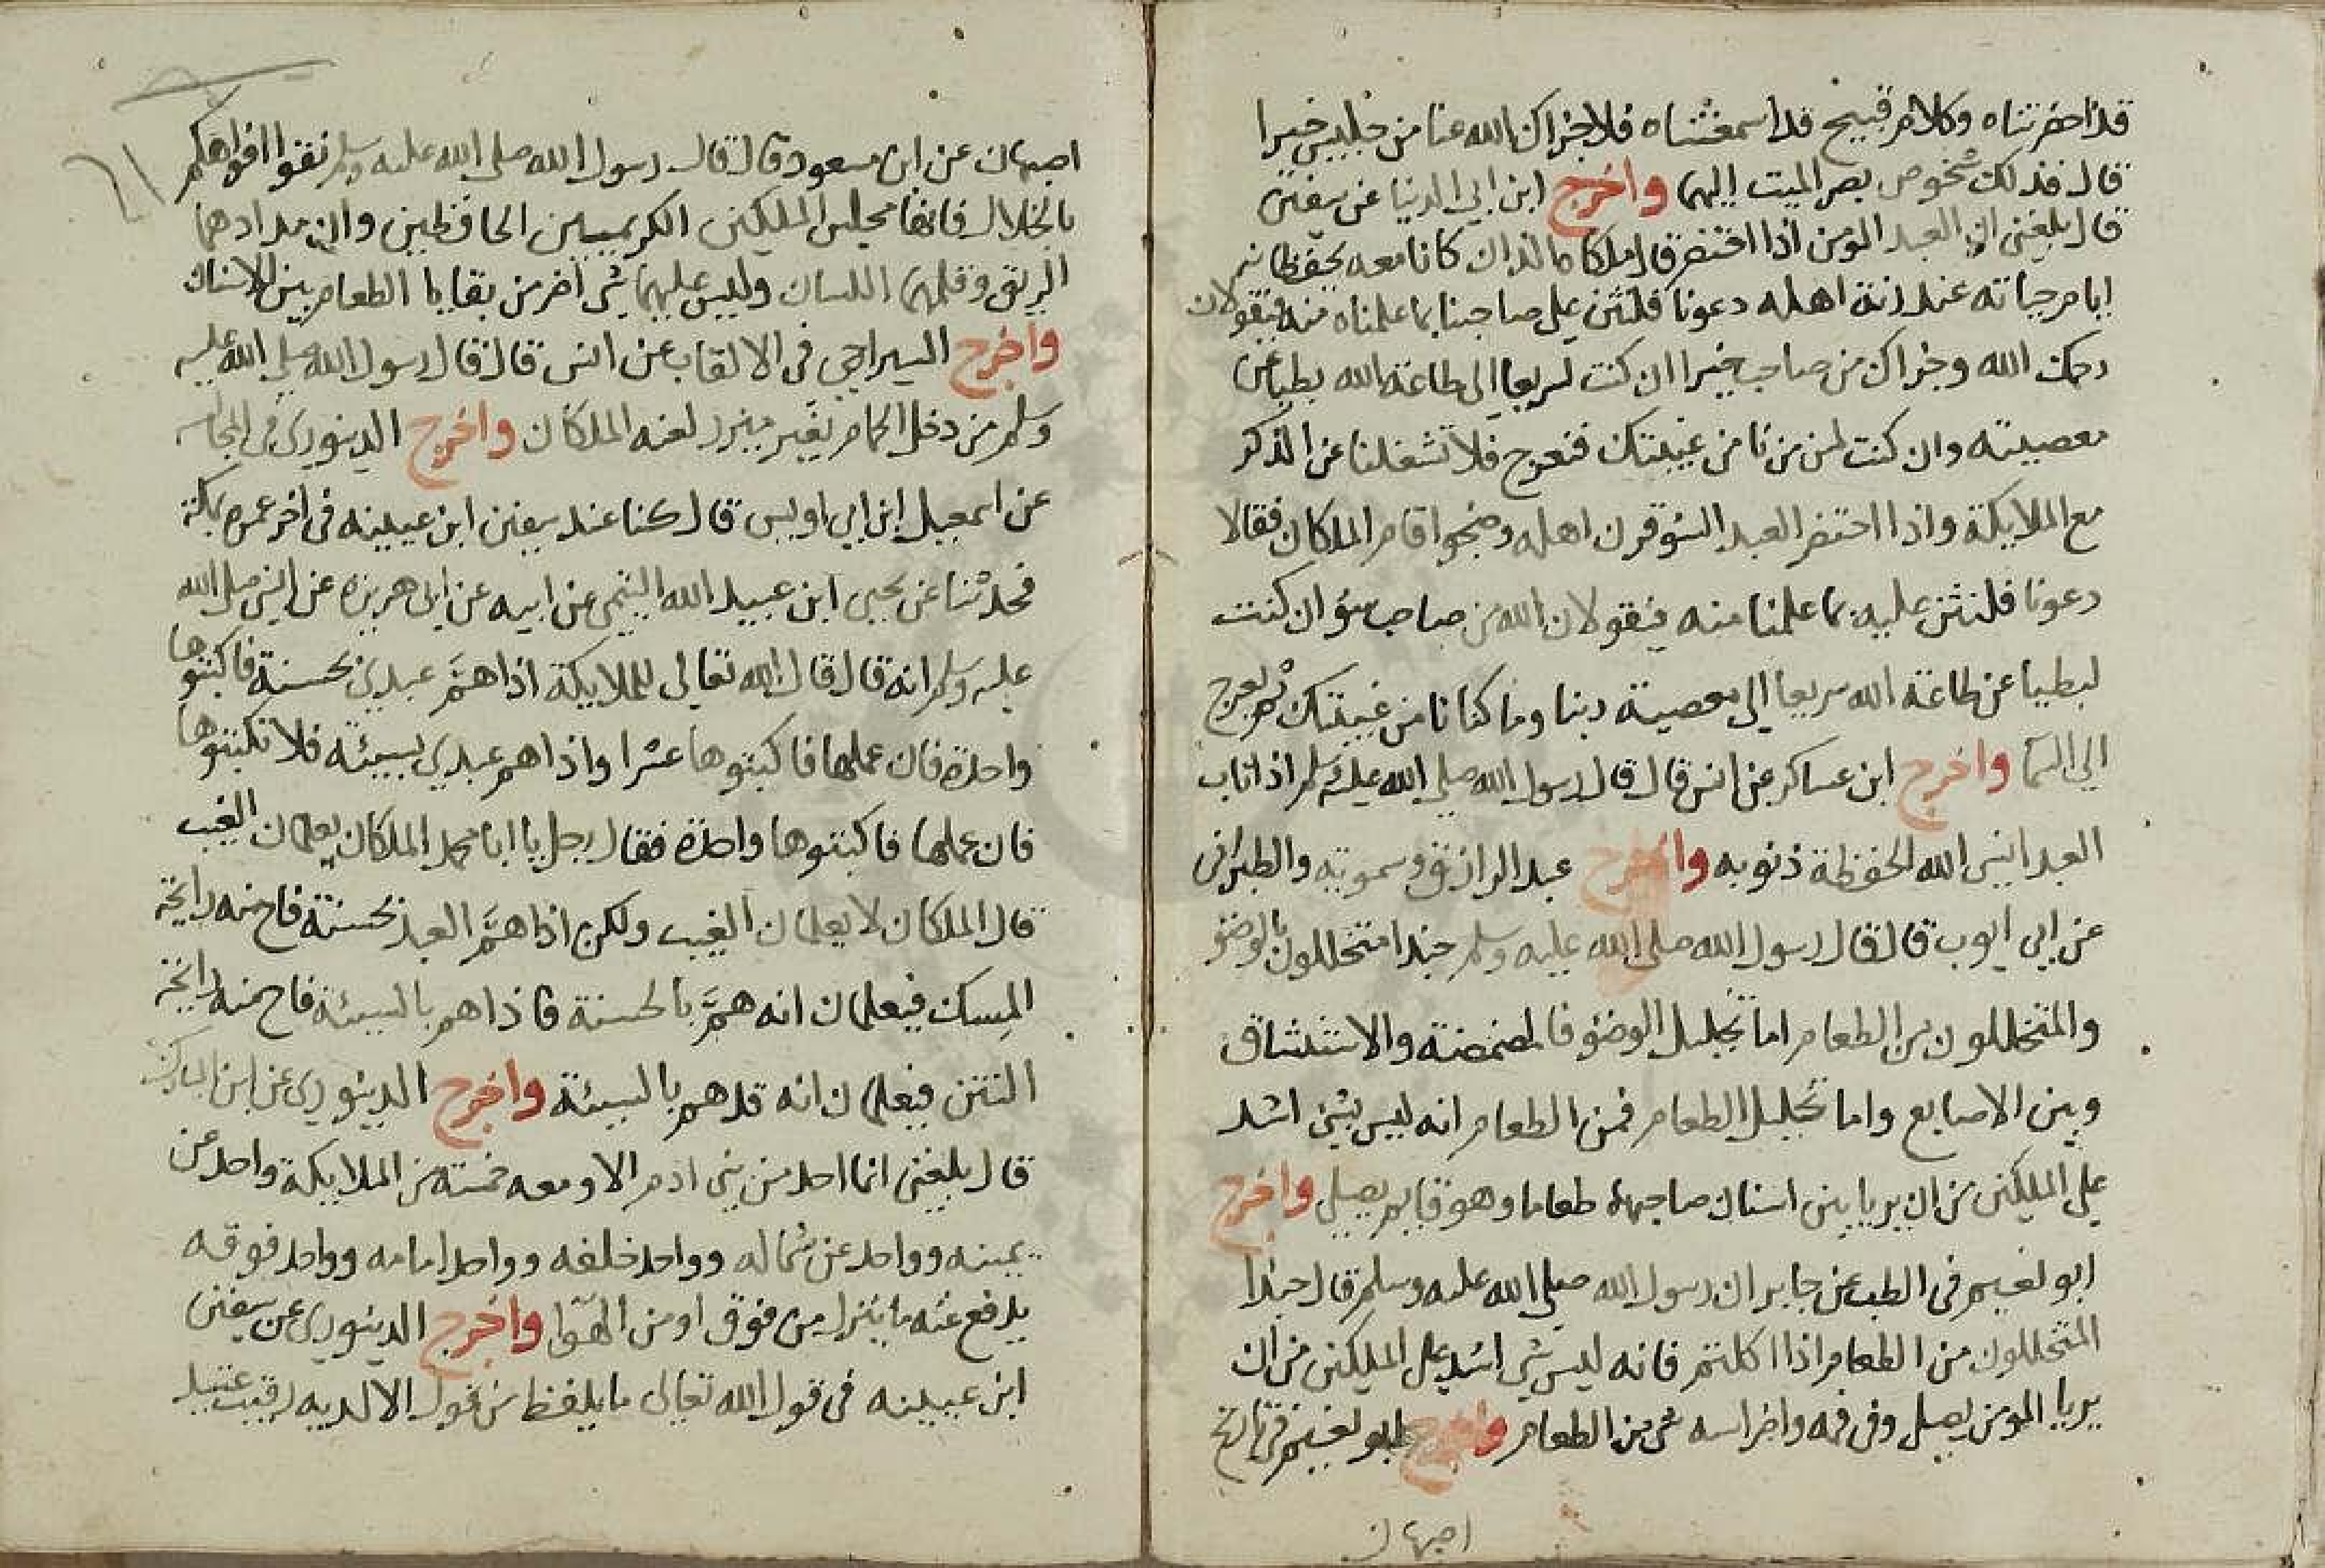 قد احضرتناه وكلام قبيح قد اسمعتناه فلا جزاك الله عنا من جليس خيرا
قال فذلك شخوص بصر الميت اليهما واخرج ابن ابي الدنيا عن سفين
قال بلغني ان العبد المومن اذا احتضر قال ملكاه اللذان كانا معه يحفظانه
ايام حياته عند رنة اهله دعونا فلنثن على صاحبنا بما علمناه منه فيقولان
رحمك الله وجزاك من صاحب خيرا ان كنت لسريعا الى طاعة الله بطيا عن
معصيته وان كنت لمن نامن غيبتك فنعرج فلا تشغلنا عن الذكر
مع الملايكة واذا احتضر العبد السؤ فرن اهله وضجوا قام الملكان فقالا
دعونا فلنثن عليه بما علمنا منه فيقولان الله من صاحب سؤ ان كنت
لبطيا عن طاعة الله سريعا الى معصية ربنا وما كنا نامن غيبتك ثم يعرج
الى السما واخرج ابن عساكر عن انس قال قال رسول الله صلى الله عليه وسلم اذا تاب
العبد انسى الله الحفظة ذنوبه واخرج عبد الرازق وسمويه والطبراني
عن ابي ايوب قال قال رسول الله صلى الله عليه وسلم حبذا المتخللون بالوضؤ
والمتخللون من الطعام اما تخليل الوضؤ فالمضمضة والاستنشاق
وبين الاصابع واما تخليل الطعام فمن الطعام انه ليس شي اشد
على الملكين من ان يريا بين اسنان صاحبهما طعاما وهو قايم يصلي واخرج
ابو نعيم في الطب عن جابر ان رسول الله صلى الله عليه وسلم قال حبذا
المتخللون من الطعام اذا اكلتم فانه ليس شي اشد على الملكين من ان
يريا المومن يصلي وفي فمه واضراسه شي من الطعام واخرج ابو نعيم في تاريخ
اصبهان
اصبهان عن ابن مسعود قال قال رسول الله صلى الله عليه وسلم نقوا افواهكم
بالخلال فانها مجلس الملكين الكريمين الحافظين وان مدادهما
الريق وقلمهما اللسان وليس عليهما شي اضر من بقايا الطعام بين الاسنان
واخرج السيراجي في الالقاب عن انس قال قال رسول الله صلى الله عليه
وسلم من دخل الحمام بغير ميزر لعنه الملكان واخرج الدينوري في المجالسه
عن اسمعيل ابن ابي اويس قال كنا عند سفين ابن عيينه في اخر عمره بمكة
فحدثنا عن يحيى ابن عبيد الله التيمي عن ابيه عن ابي هريرة عن النبي صلى الله
عليه وسلم انه قال قال الله تعالى للملايكة اذا همَّ عبدي بحسنة فاكتبوها
واحدة فان عملها فاكتبوها عشرا واذا هم عبدي بسيئة فلا تكتبوها
فان عملها فاكتبوها واحدة فقال رجل يا ابا محمد الملكان يعلمان الغيب
قال الملكان لا يعلمان الغيب ولكن اذا همَّ العبد بحسنة فاح منه رايحة
المسك فيعلمان انه همَّ بالحسنة فاذا هم بالسيئة فاح منه رايحة
النتن فيعلمان انه قد هم بالسيئة واخرج الدينوري عن ابن المبارك
قال بلغني انما احد من بني ادم الا ومعه خمسة من الملايكة واحد عن
يمينه وواحد عن شماله وواحد خلفه وواحد امامه وواحد فوقه
يدفع عنه ما ينزل من فوق او من الهوا واخرج الدينوري عن سفين
ابن عيينه في قول الله تعالى ما يلفظ من قول الا لديه رقيب عتيد